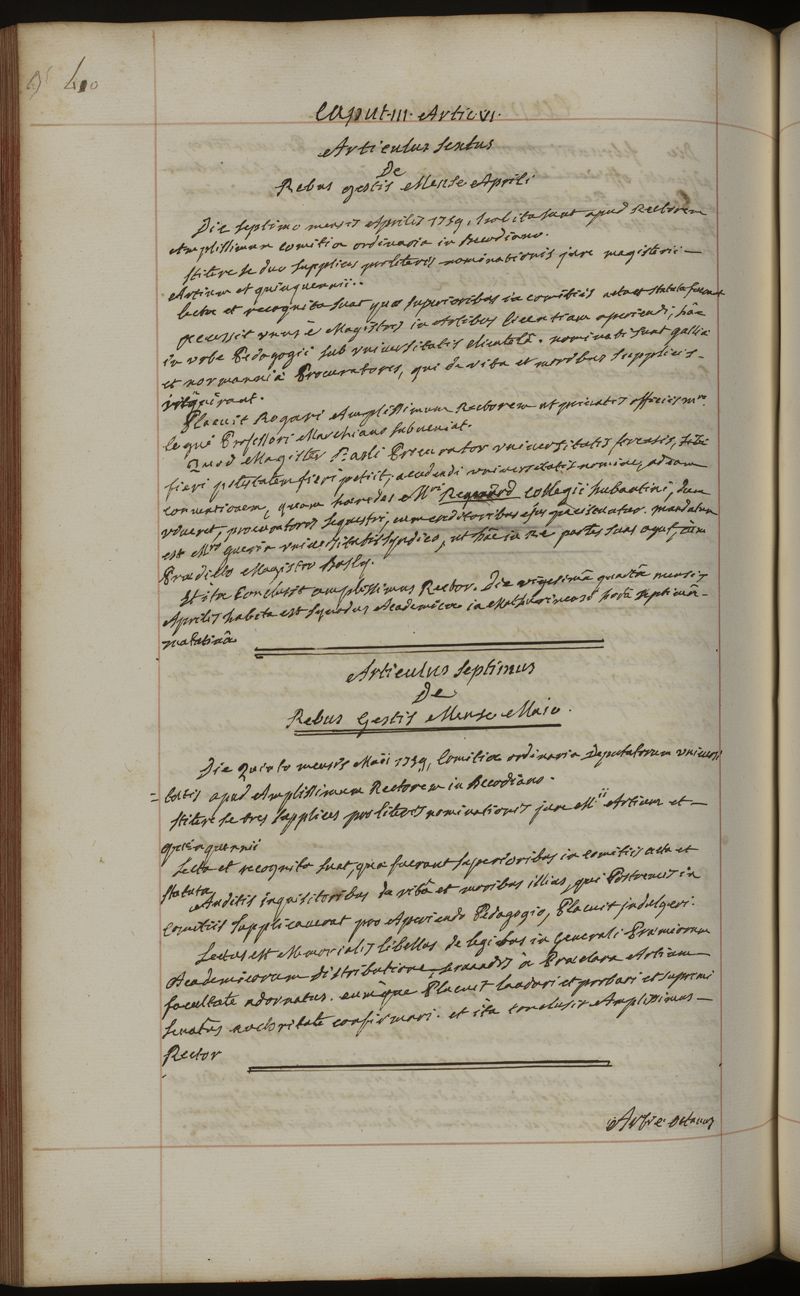 40
Caput. III. Artic. VI.
Articulus Sextus
De
Rebus gestis Mense Aprili
Die Septimo mensis Aprilis 1739. habita sunt apud Rectorem
Amplissimum comitia ordinaria in Becodiano.
Stitere se duo Supplices pro literis nominationis jure magisterii
Artium et quinquennii.
Lecta et recognita sunt quæ superioribus in comitiis acta et statuta fuerant
Accessit unus è Magistris in Artibus licentiam aperiendi, hâc
in urbe Pedagogii sub universitatis clientelâ. nominati sunt galliæ
et normanniæ Procuratores, qui de vita et moribus supplicis
inquirant.
Placuit Rogari Amplissimum Rectorem ut privatis officiis m.ro
le qué Professori Marchiano subveniat.
Quod Magister Procurator universitatis forensis, sibi
fieri potestatem fieri petiit, accedendi universitatis nomine, ad eam
conventionem, quam hæredes M.ri Regnard collegii hubantini, dum
viveret, procuratoris sequestri, cum creditoribus ejus mandatum
est M.ro guerin universitatis syndico, ut hâc in re partes suas agat, cum
Prædicto Magistro
Et ita Conclusit amplissimus Rector. Die vigesimâ quartâ mensis
Aprilis habita est Synodus Academica in Mathurinensi horâ septimâ
matutinâ
Articulus Septimus
De
Rebus Gestis Mense Maio.
Die Quinto mensis Maii 1739, Comitia ordinaria Deputatorum universi
= tatis apud Amplissimum Rectorem in Becodiano.
Stitere se tres Supplices pro literis nominationis jure M.ii Artium et
quinquennii
Lecta et recognita sunt, quæ fuerant superioribus in comitiis acta et
statuta
Auditis inquisitoribus de vitâ et moribus illius, qui Postremis in
Comitiis Supplicaverat pro Aperiendo Pedagogio, Placuit indulgeri.
Lectus est Memorialis libellus de legibus in Generali Præmiorum
Academicorum distributione servandis à Præclara Artium
facultate adornatus. eumque Placuit laudari et probari et supremi
Senatûs auctoritate confirmari. et ita conclusit Amplissimus
Rector
Artic. Octavus